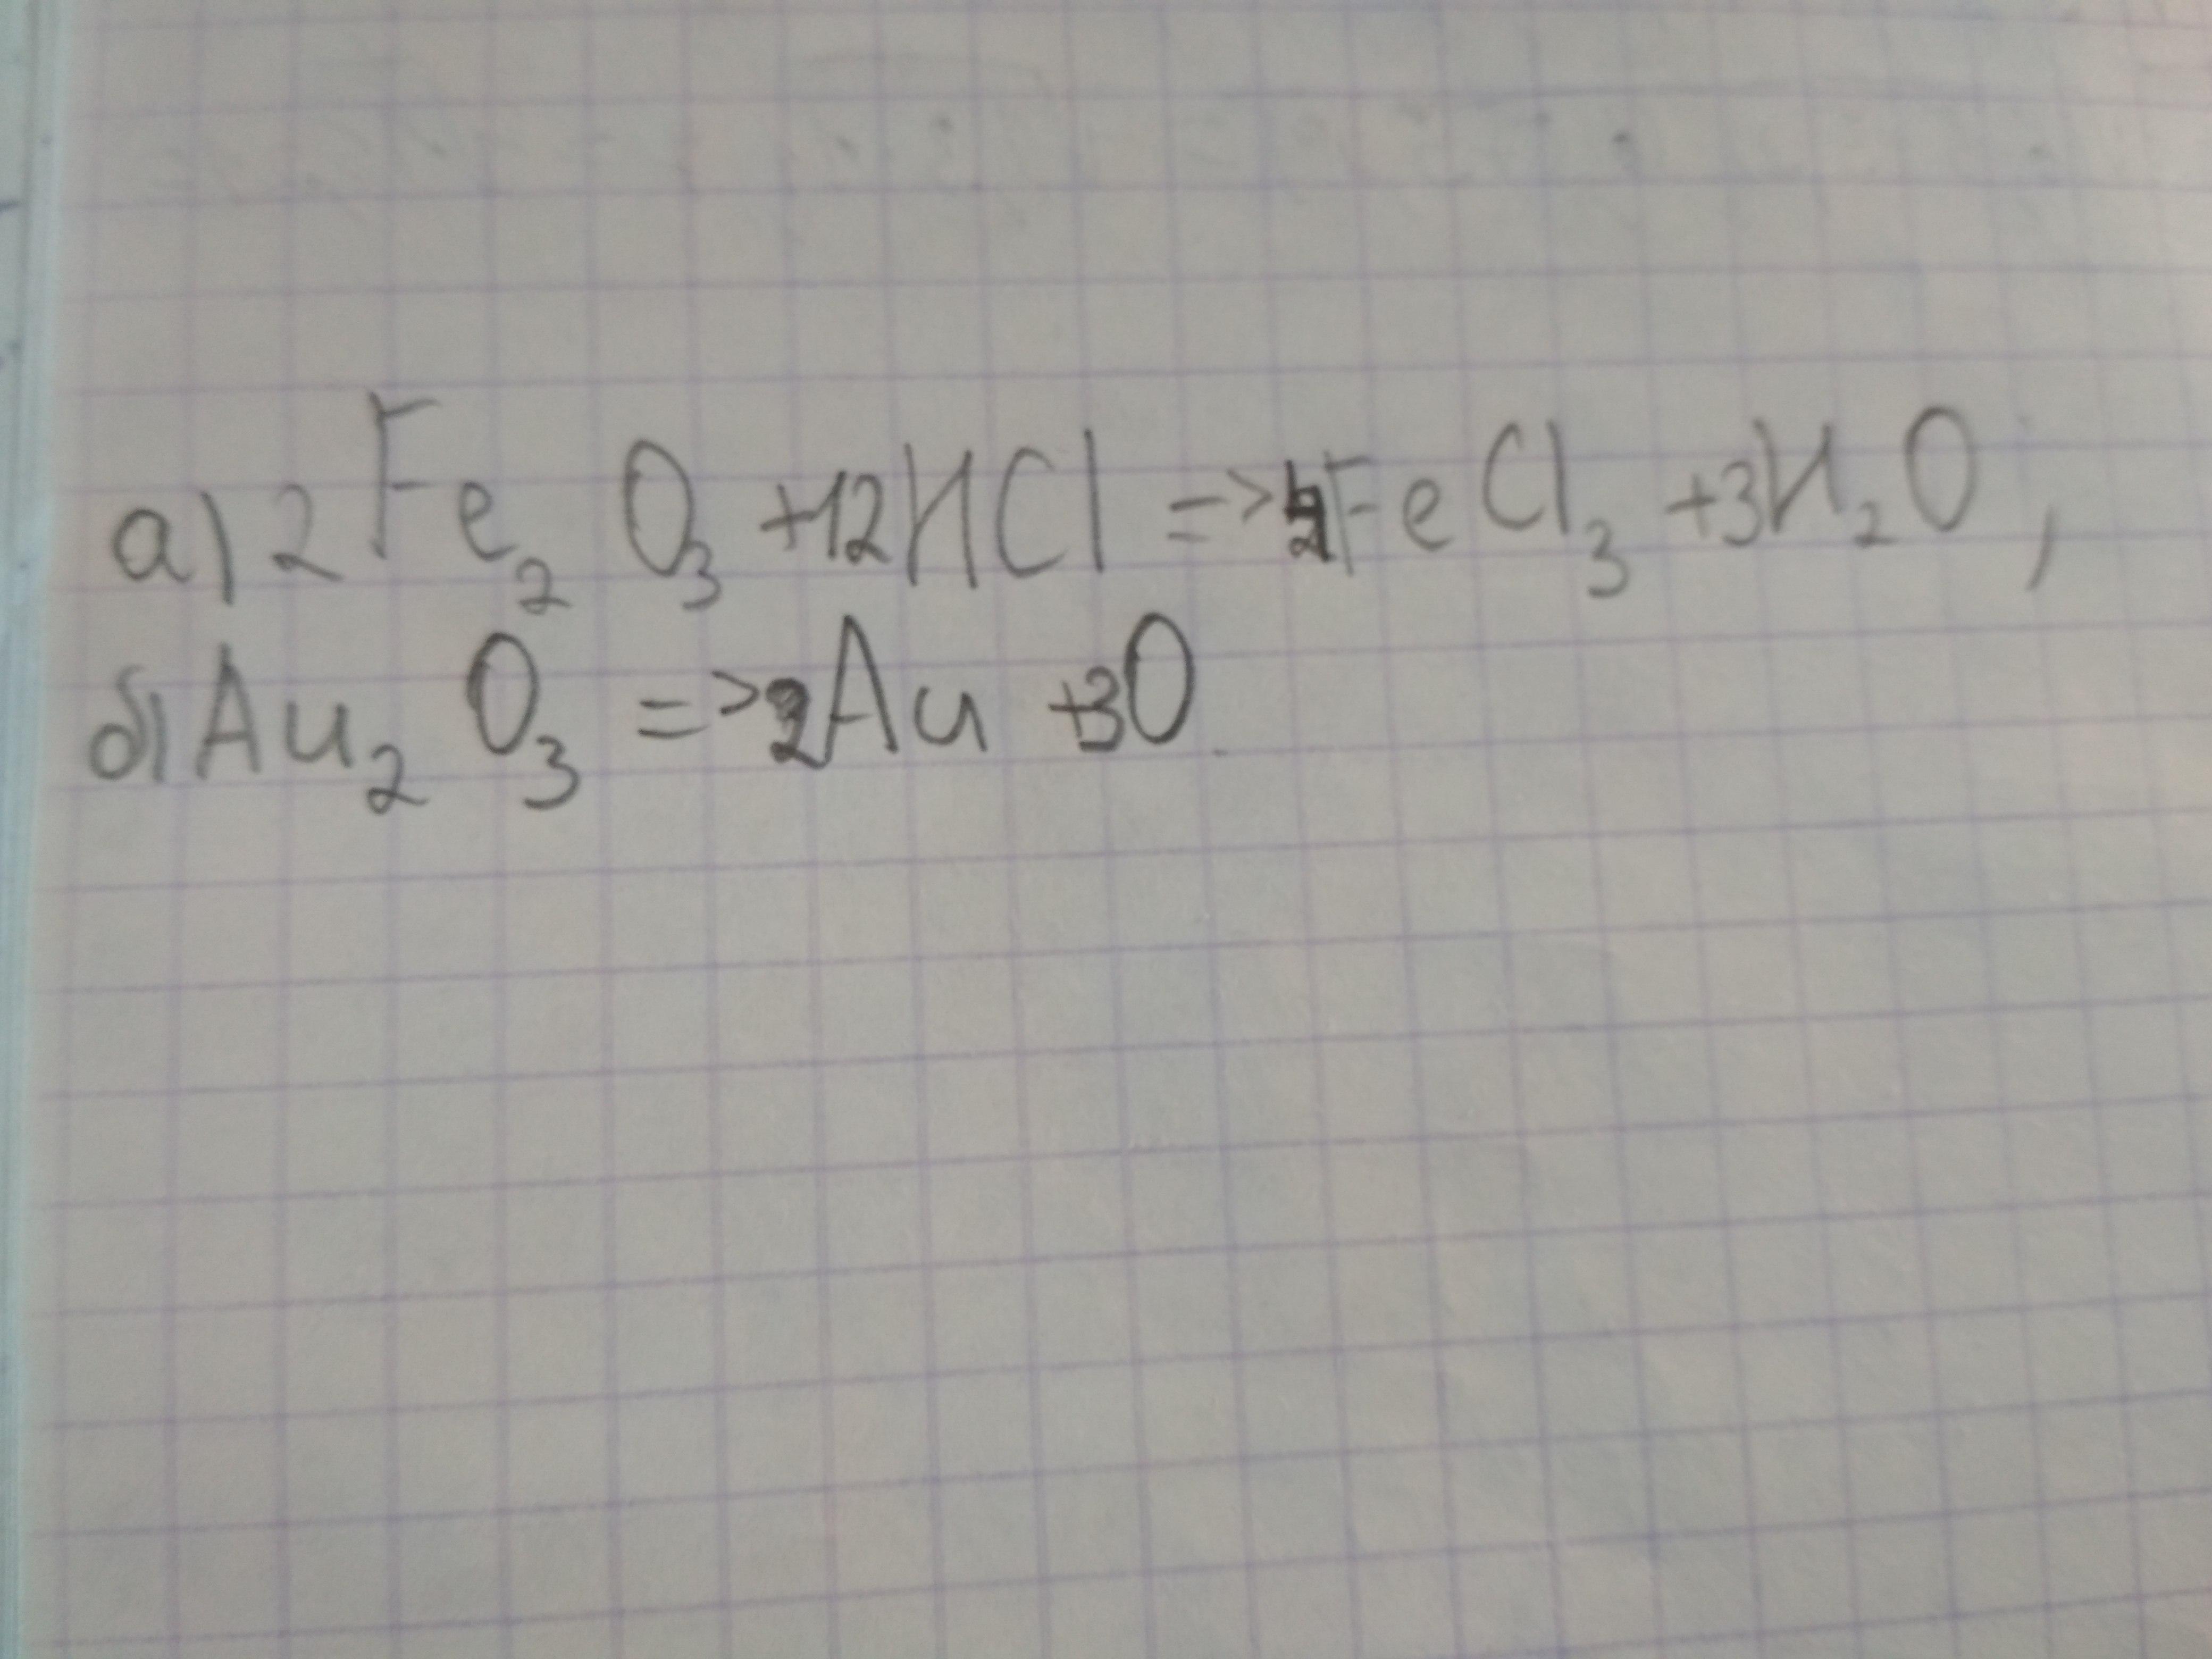 а) 2Fe₂O₃ +12HCl => FeCl₃ +3H₂O,
б) Au₂O₃ => 2Au +3O.